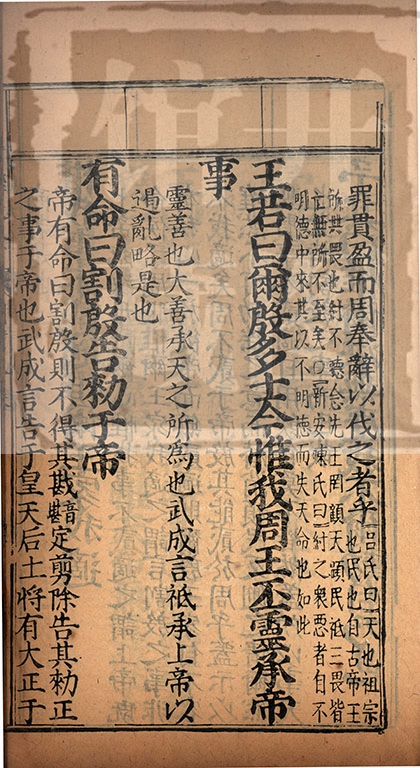 罪貫盈而周奉辭以伐之者乎呂氏曰天也祖宗也民也自古帝王
所共畏也紂不德念先王罔顧天顯民祗三畏皆亡無所不至矣○新安陳氏曰紂之衆惡者自不
明德中來其以不明德而失天命也如此
王若曰爾殷多士今惟我周王丕靈承帝
事
靈善也大善承天之所爲也武成言祗承上帝以
遏亂略是也
有命曰割殷告勑于帝
帝有命曰割殷則不得其戡音堪定剪除告其勑正
之事于帝也武成言告于皇天后土將有大正于